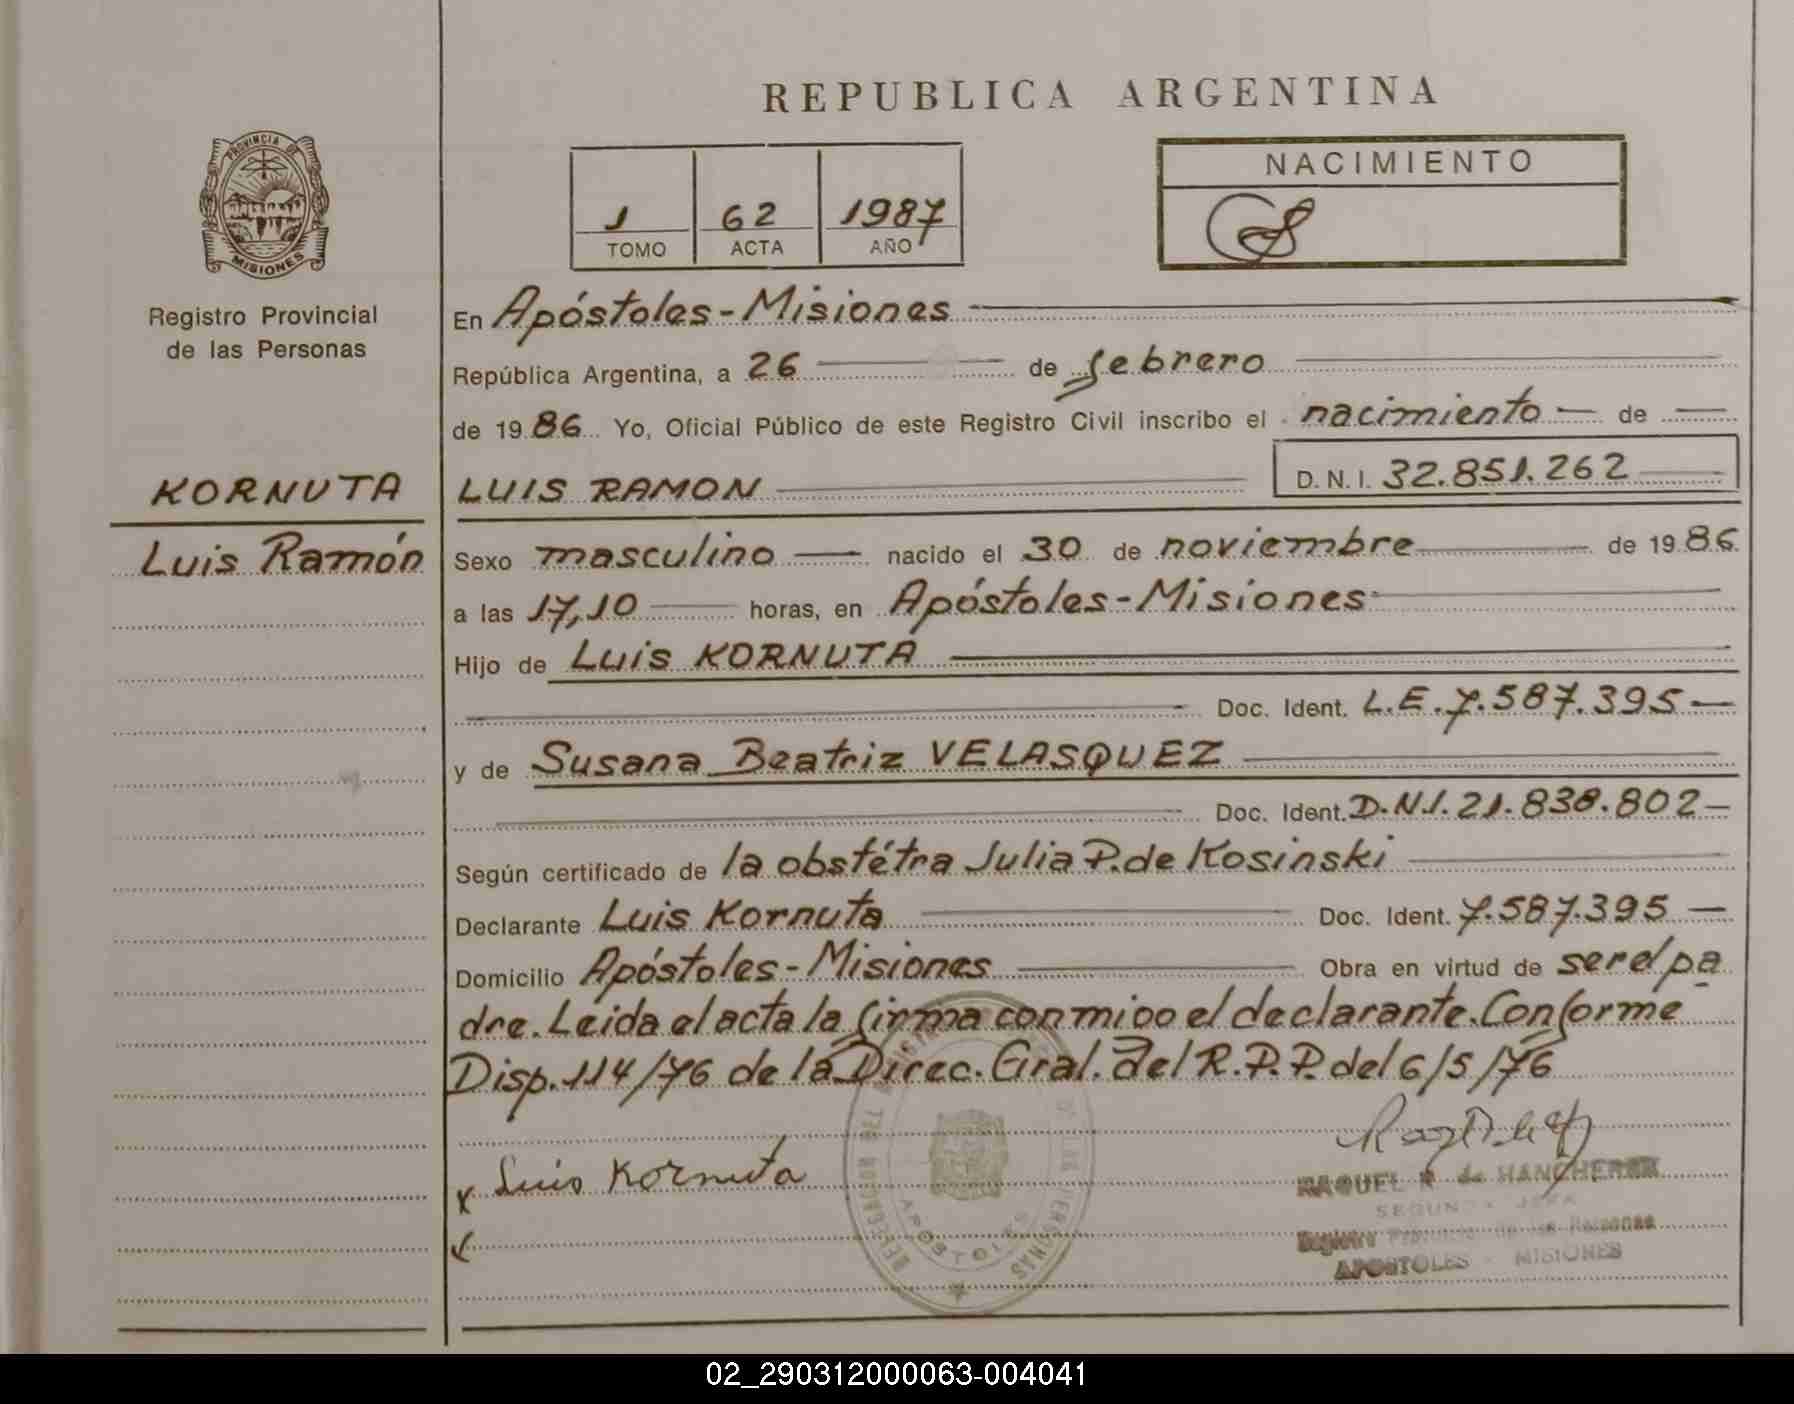 REPUBLICA ARGENTINA
PROVINCIA DE
MISIONES
Registro Provincial
de las Personas
1 62 1987
TOMO ACTA AÑO
NACIMIENTO
En Apóstoles-Misiones
República Argentina, a 26 de febrero
de 1986 Yo, Oficial Público de este Registro Civil inscribo el nacimiento de
KORNUTA
Luis Ramón
LUIS RAMON D.N.I. 32.851.262
Sexo masculino nacido el 30 de noviembre de 1986
a las 17,10 horas, en Apóstoles-Misiones
Hijo de Luis KORNUTA
Doc. Ident. L.E.7.587.395
y de Susana Beatriz VELASQUEZ
Doc. Ident. D.N.I.21.838.802
Según certificado de la obstétra Julia P. de Kosinski
Declarante Luis Kornuta Doc. Ident. 7.587.395
Domicilio Apóstoles-Misiones Obra en virtud de ser el pa
dre. Leida el acta la firma conmigo el declarante. Conforme
Disp. 114/76 de la Direc. Gral. del R.P.P. del 6/5/76
x Luis Kornuta
RAQUEL R. de
SEGUNDA JEFA
Registro Provincial de las Personas
APOSTOLES - MISIONES
APOSTOLES
02_290312000063-004041